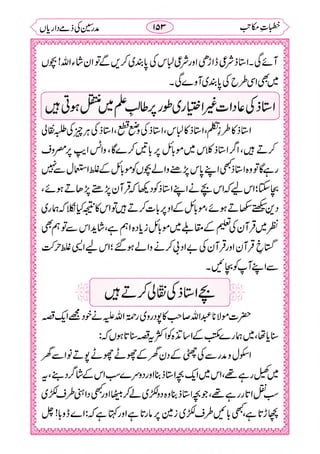 خطباتِ مکاتب ۱۵۳ مدرسین کی ذمے داریاں
آئے گی۔ استاذ شرعی ڈاڑھی اور شرعی لباس کی پابندی کریں گے تو ان شاء اللہ! بچوں
میں بھی اسی طرح کی پابندی آوے گی۔
استاذ کی عادات غیر اختیاری طور پر طالبِ علم میں منتقل ہوتی ہیں
استاذ کا طرزِ تکلم، استاذ کا لباس، استاذ کی وضع قطع، استاذ کی ہر چیز کی طلبہ نقالی
کرتے ہیں، اگر استاذ کلاس میں موبائل پر باتیں کرے گا، وہاٹس ایپ پر مصروف
رہے گا تو وہ استاذ کبھی اپنے پاس پڑھنے والے بچوں کو موبائل کے غلط استعمال سے نہیں
بچا سکتا؛ اس لیے کہ اس بچے نے اپنے استاذ کو دیکھا کہ قرآن پڑھتے پڑھاتے ہوئے،
دین سیکھتے سکھاتے ہوئے، موبائل کے اوپر بات کرتے ہیں تو اس کا نتیجہ کیا نکلا کہ ہماری
نظر میں قرآن کی تعلیم کے مقابلے میں موبائل زیادہ اہم ہے، شاید اس سے تو ہم بھی
گستاخِ قرآن اور قرآن کی بے ادبی کرنے والے ہو گئے؛ اس لیے ایسی غلط حرکت
سے اپنے آپ کو بچائیں۔
بچے استاذ کی نقالی کرتے ہیں
حضرت مولانا عبد اللہ صاحب کاپودروی رحمۃ اللہ علیہ نے خود مجھے ایک قصہ
سنایا تھا، میں ہمارے مکتب کے اساتذہ کو اکثر یہ قصہ سناتا ہوں کہ:
اسکول و مدرسے کی چھٹی کے دن گھر کے چھوٹے چھوٹے پوتے نواسے گھر
میں کھیل رہے تھے، اس میں ایک بچہ استاذ بنا اور دوسرے سب اس کے شاگرد بنے، یہ
سب نقل اتار رہے تھے، جو بچہ استاذ بنا وہ دو لکڑی لے کر بیٹھا اور کبھی داہنی طرف لکڑی
پچھاڑتا ہے، کبھی بائیں طرف لکڑی زمین پر مارتا ہے اور کہتا ہے کہ: اے ڈوبا! چل